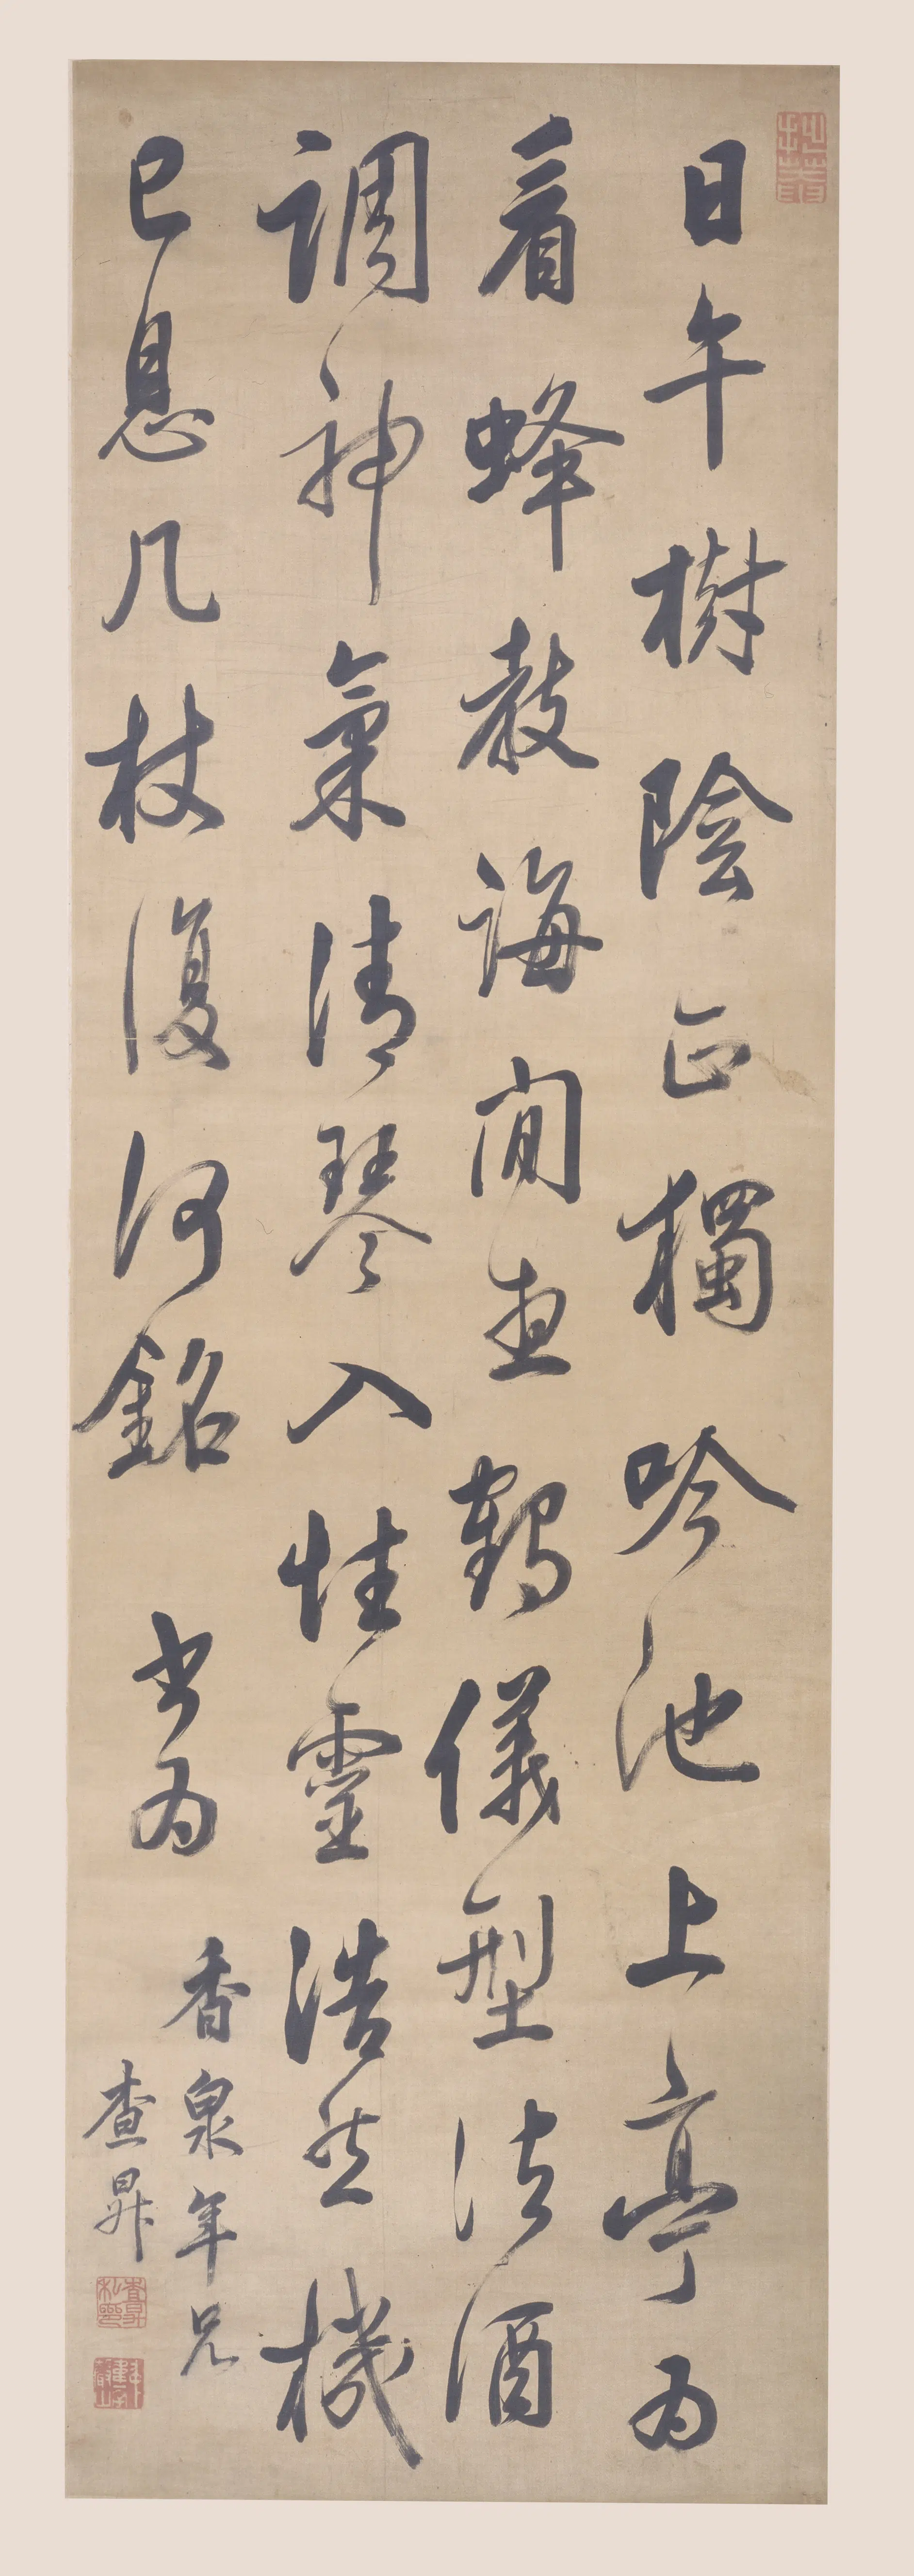 日午樹陰正獨吟池上亭為
看蜂教誨閒鶴儀型法酒
調神氣清琴入性靈浩然機
已息几杖復何銘 書為
香泉年兄
查昇
查昇私印